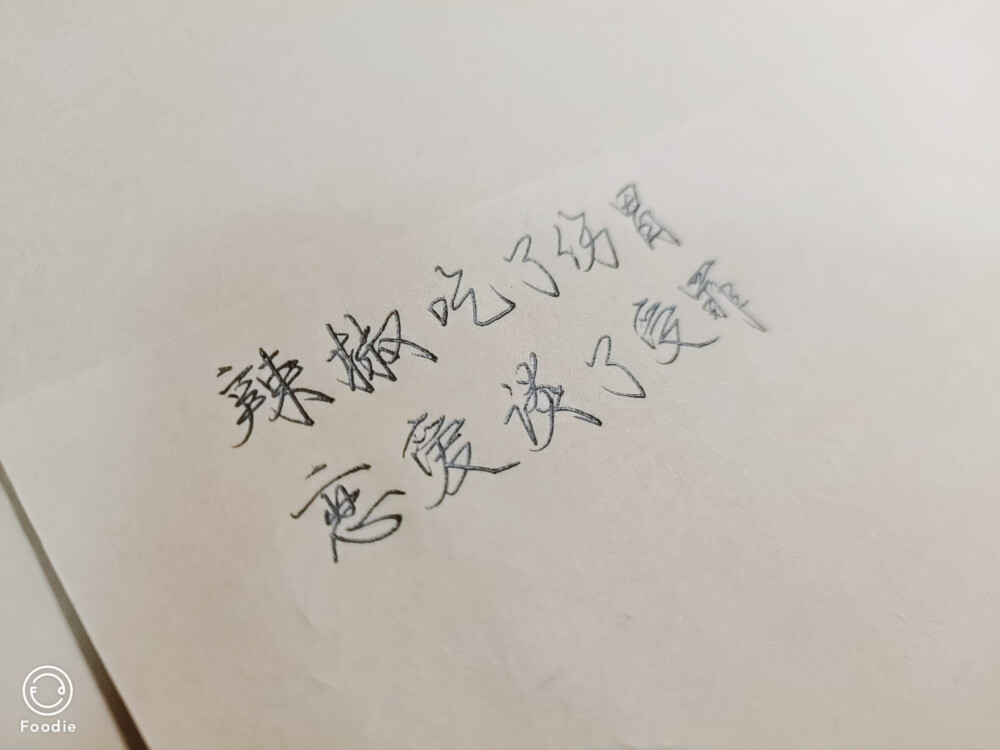 辣椒吃了伤胃
恋爱谈了受罪
Foodie